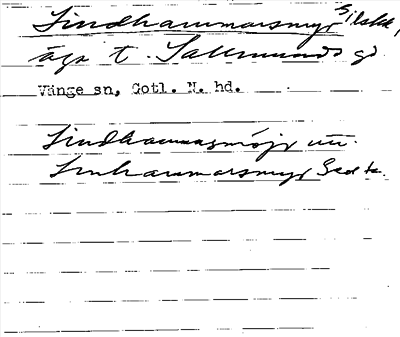 Lindhammarsmyr
äga t. Sallmunds gd
Vänge sn, Gotl. N. hd.
Lindhammarsmöjr
Linhammarsmyr